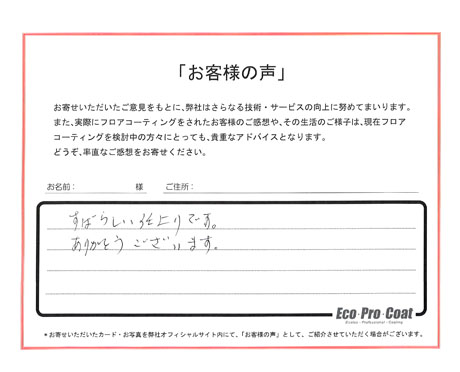 「お客様の声」
お寄せいただいたご意見をもとに、弊社はさらなる技術・サービスの向上に努めてまいります。
また、実際にフロアコーティングをされたお客様のご感想や、その生活のご様子は、現在フロア
コーティングを検討中の方々にとっても、貴重なアドバイスとなります。
どうぞ、率直なご感想をお寄せください。
お名前: 様 ご住所:
すばらしい仕上りです。
ありがとうございます。
Eco・Pro・Coat
Ecology・Professional・Coating
*お寄せいただいたカード・お写真を弊社オフィシャルサイト内にて、「お客様の声」として、ご紹介させていただく場合がございます。